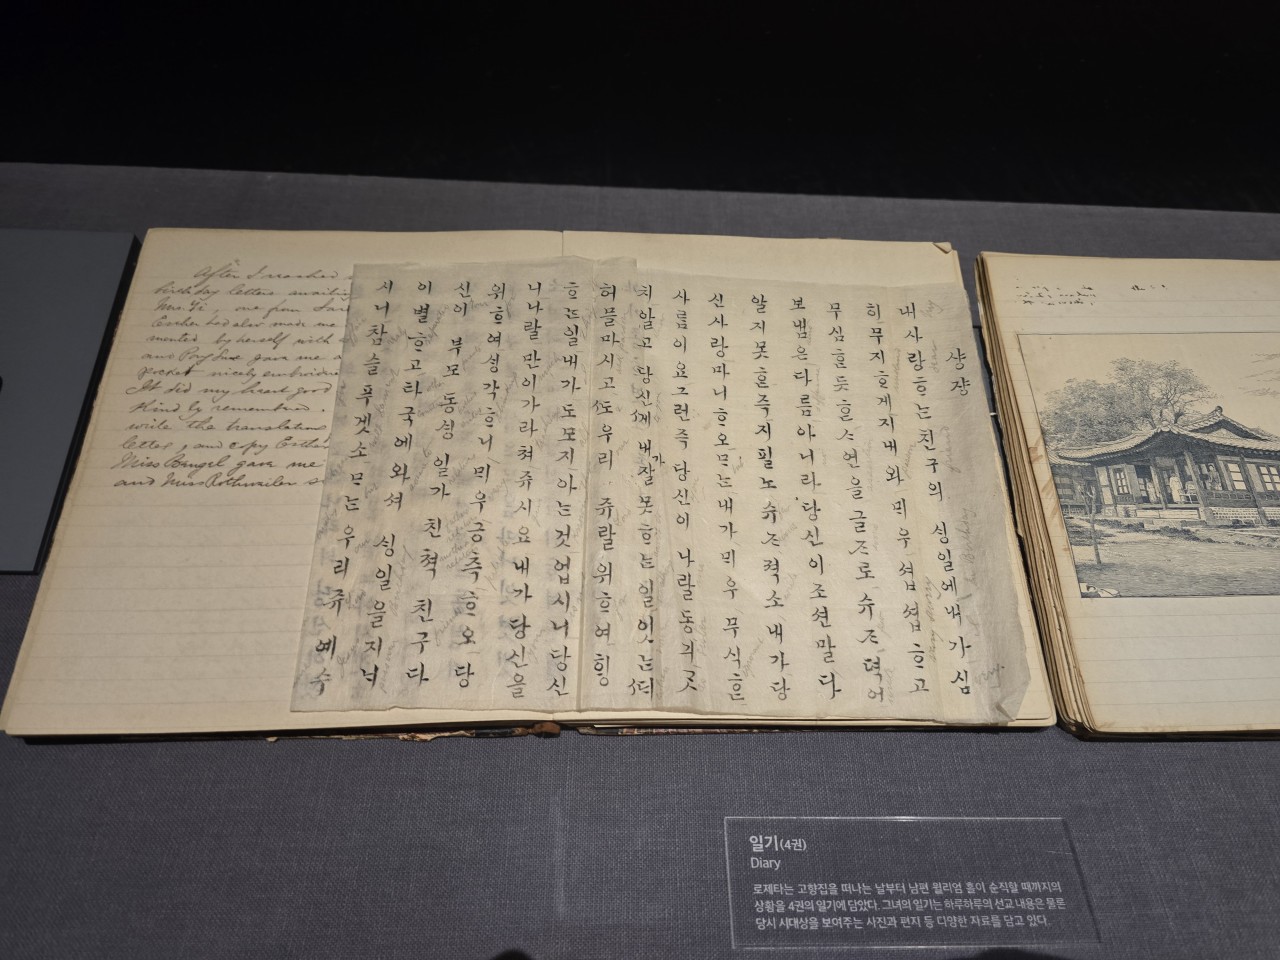 After I reached
birthday letters awaiting
Mrs. Yi, one from
Esther had also made me
mented by herself with
and Pay Sue gave me a
pocket nicely embroide
It did my heart good
Kind by remembered.
write the translations
letter, and copy Esth
Miss Bengel gave me
and Miss Rothweiler
샹쟝
내사랑ᄒᆞ는친구의 싱일에내가심
히무지ᄒᆞ게지내와 믜우 셥셥ᄒᆞ고
무심ᄒᆞᆫ듯ᄒᆞᆫᄉᆞ연을글ᄌᆞ로 슈ᄌᆞ젹어
보냄은다름아니라당신이조션말다
알지못ᄒᆞᆫ즉지필노슈ᄌᆞ젹소내가당
신사랑마니ᄒᆞ오ᄆᆞ는내가믜우 무식ᄒᆞᆫ
사름이요그런즉 당신이 나랄동긔굿
치알고 당신ᄭᅦ 내가잘못ᄒᆞ는일잇는ᄃᆡ
허믈마시고ᄯᅩ우리 쥬랄위ᄒᆞ여힝
ᄒᆞᆫ일내가도모지아는것업시니당신
니나랄만이가라쳐쥬시요내가당신을
위ᄒᆞ여싱각ᄒᆞ니믜우긍측ᄒᆞ오당
신이 부모동싱 일가 친쳑 친구다
이별ᄒᆞ고타국에와셔 싱일을지
시니참슬푸겟소ᄆᆞ는우리쥬 예수
일기(4권)
Diary
로제타는 고향집을 떠나는 날부터 남편 윌리엄 홀이 순직할 때까지의
상황을 4권의 일기에 담았다. 그녀의 일기는 하루하루의 선교 내용은 물론
당시 시대상을 보여주는 사진과 편지 등 다양한 자료를 담고 있다.